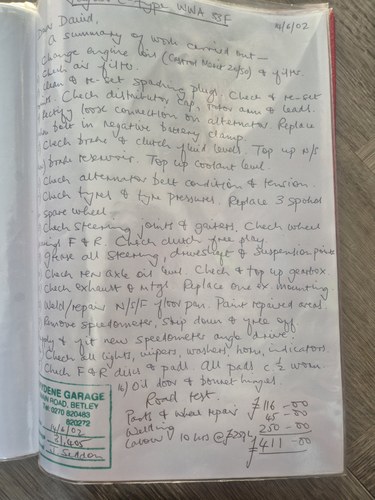 Type WWA 85F
14/6/02
Dear David,
A summary of work carried out—
Change engine oil (Castrol 20/50) & filter.
Check air filter.
Clean & re-set sparking plugs. Check & re-set
points. Check distributor cap, rotor arm & leads.
Rectify loose connection on alternator. Replace
bolt in negative battery clamp.
Check brake & clutch fluid levels. Top up N/S
brake reservoir. Top up coolant level.
Check alternator belt condition & tension.
Check tyres & tyre pressures. Replace 3 spokes
spare wheel.
Check steering joints & gaiters. Check wheel
F & R. Check clutch free play.
Grease all steering, driveshaft & suspension points
Check rear axle oil level. Check & top up gearbox.
Check exhaust & mtgs. Replace one ex mounting
Weld/repair N/S/F floor pan. Paint repaired area.
Remove speedometer, strip down & free off.
Supply & fit new speedometer angle drive.
Check all lights, wipers, washers, horn, indicators
Check F & R discs & pads. All pads c ½ worn.
Oil door & bonnet hinges
Road test.
Parts & wheel repair £116-00
Welding 45-00
Labour 10 hrs @ £25/hr 250-00
£411-00
DENE GARAGE
ROAD, BETLEY
Tel: 0270 820483
820272
14/6/02